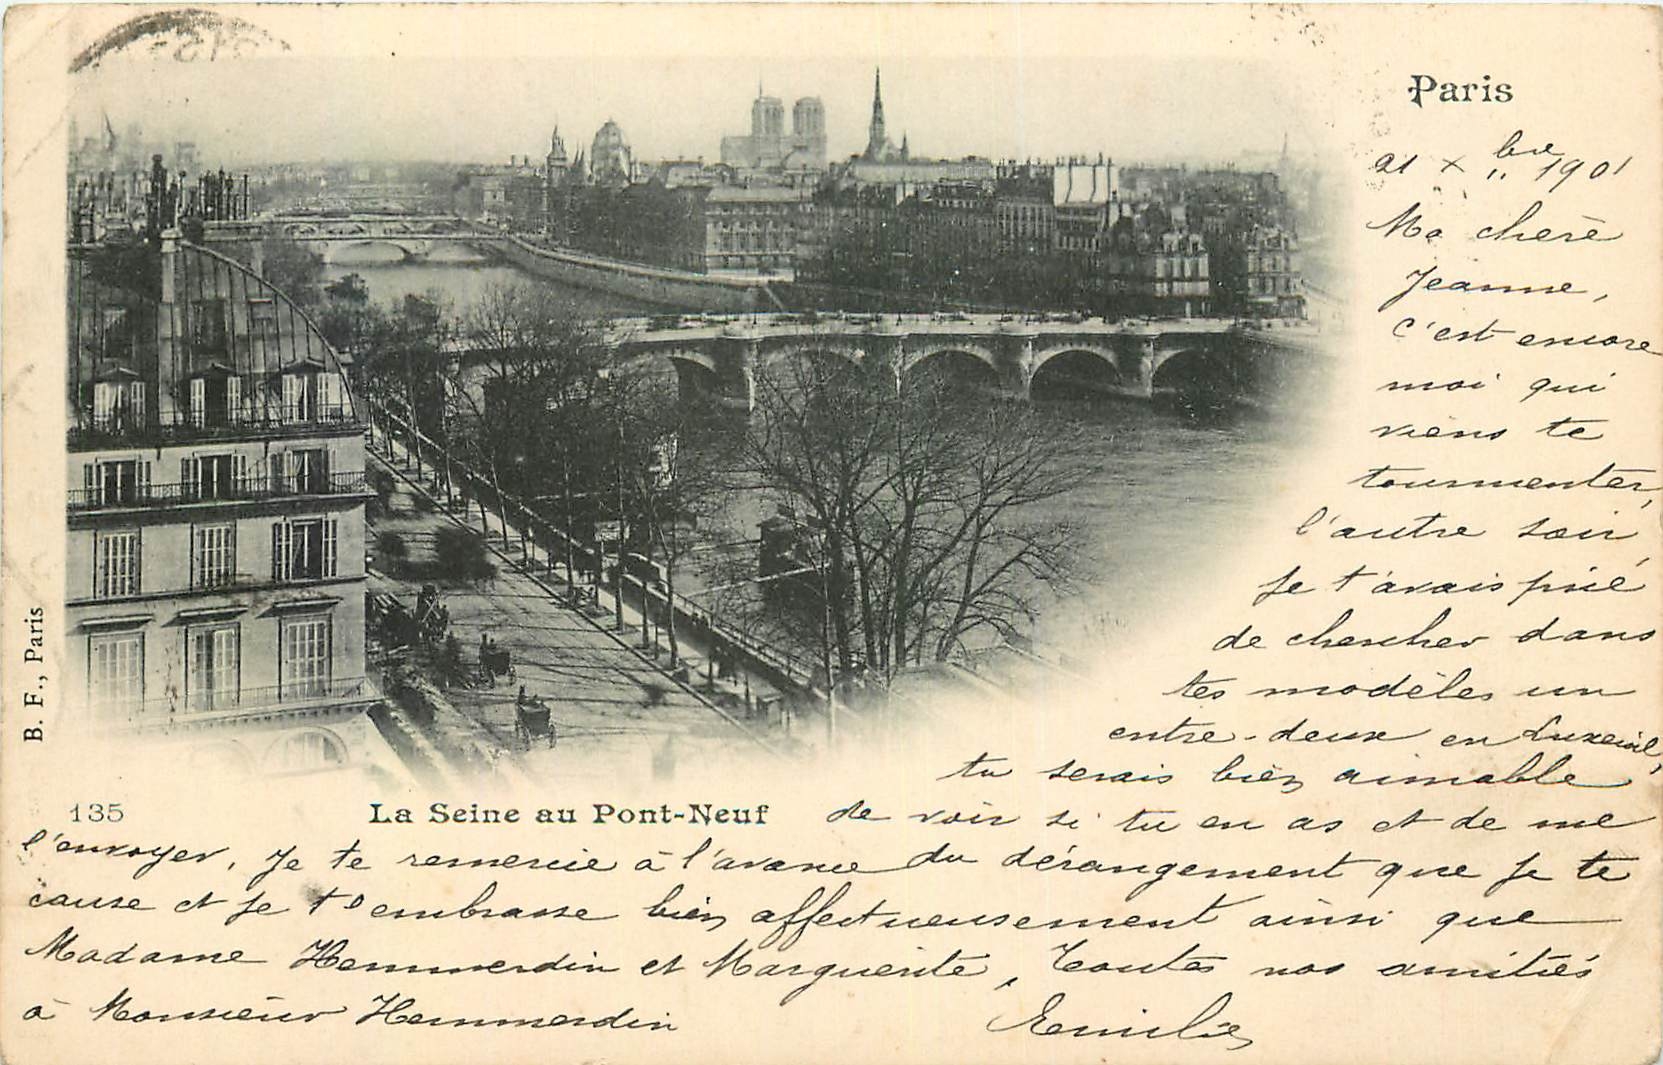 Paris
21 Xbre 1901
Ma chère
Jeanne,
c'est encore
moi qui
viens te
tourmenter,
l'autre soir,
je t'avais prié
de chercher dans
tes modèles un
entre-deux en Luxeuil,
tu serais bien aimable
de voir si tu en as et de me
l'envoyer. Je te remercie à l'avance du dérangement que je te
cause et je t'embrasse bien affectueusement ainsi que
Madame Hemmerdin et Marguerite, Toutes nos amitiés
à Monsieur Hemmerdin
Emilie
135 La Seine au Pont-Neuf
B. F., Paris